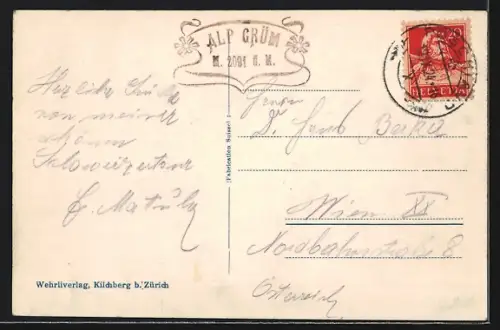 ALP GRÜM
M. 2091 ü. M.
HELVETIA
Herzliche Grüße
von meiner
schönen
Schweizertour
E. Matula
Herrn
D. Hans
Wien XX
Nordbahnstraße 8
Österreich
(Fabrication Suisse)
Wehrliverlag, Kilchberg b. Zürich